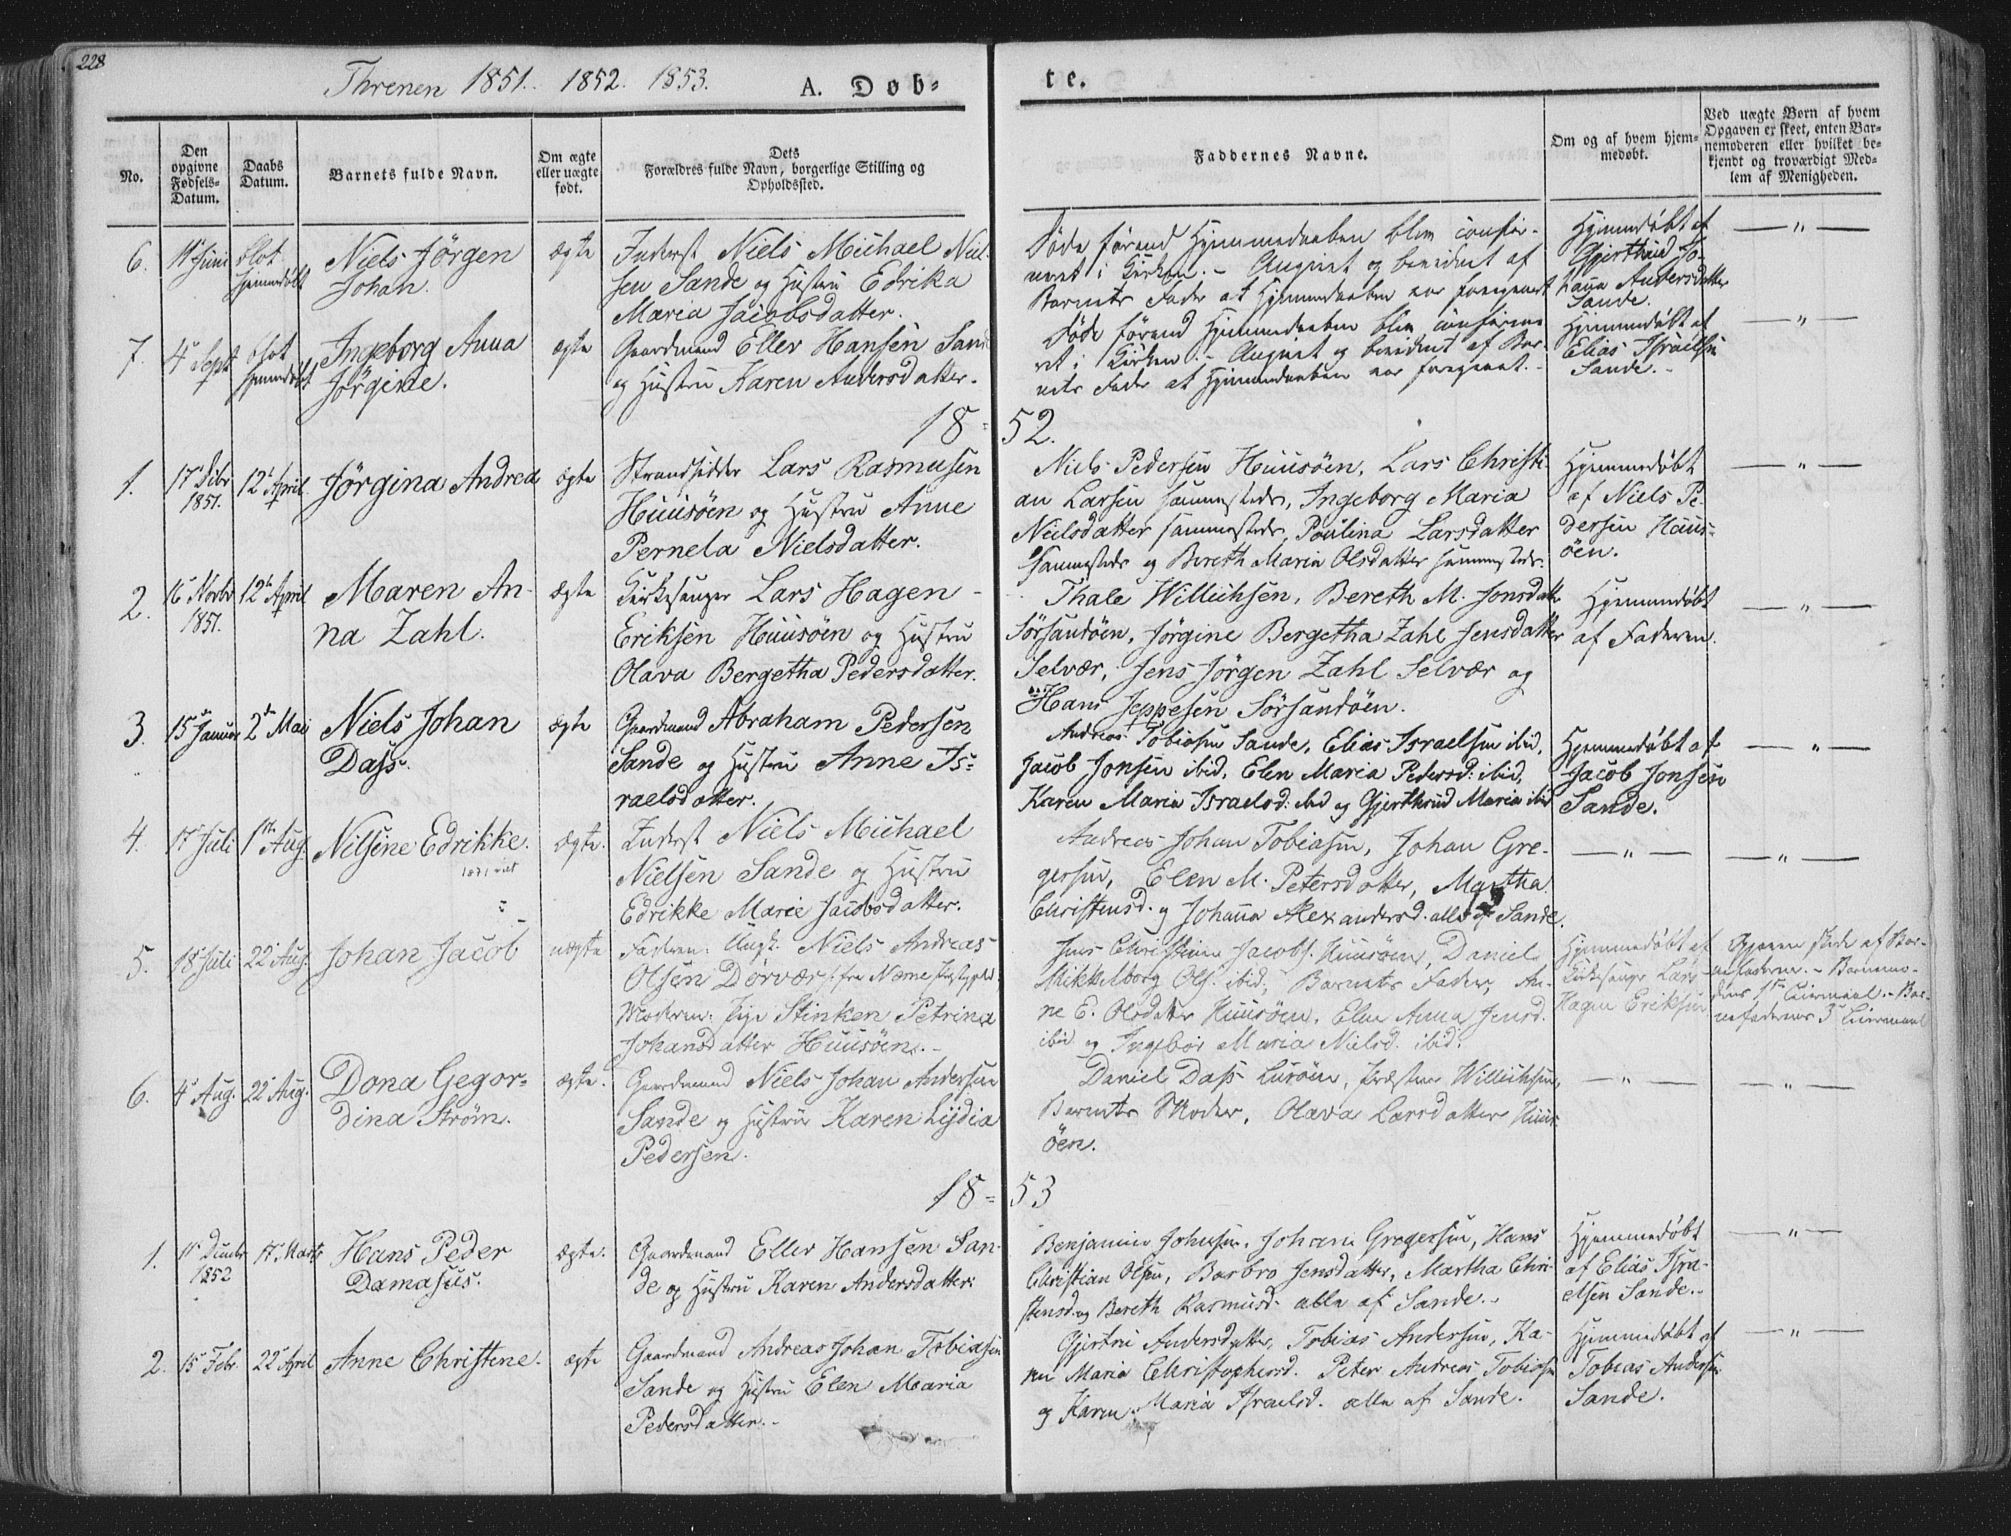 228
Threnen 1851. 1852. 1853.
A. Døb-
te.
No.
Den
opgivne
Fødsels-
Datum.
Daabs
Datum.
Barnets fulde Navn.
Om ægte
eller uægte
født.
Dets
Forældres fulde Navn, borgerlige Stilling og
Opholdssted.
Faddernes Navne.
Om og af hvem hjem-
medøbt.
Ved uægte Børn af hvem
Opgaven er skeet, enten Bar-
nemoderen eller hvilket be-
kjendt og troværdigt Med-
lem af Menigheden.
6.
Juni
blot
hjemmedøbt
Niels Jörgen
Johan.
ægte
Inderst Niels Michael Niel-
sen Sande og Hustru Edrika
Maria Jacobsdatter.
Døde førend Hjemmedaaben blev confir-
meret i Kirken. - Angivet og bevidnet af
Barnets Fader at Hjemmedaaben var foregaaet
Hjemmedøbt af
Gjerthrud Jo-
hanna Andersdatter
Sande.
— " —
7.
4 Sept
blot
hjemmedøbt
Ingeborg Anna
Jörgine.
ægte
Gaardmand Eller Hansen Sande
og Hustru Karen Andersdatter.
Døde førend Hjemmedaaben blev confirme
ret i Kirken. - Angivet og bevidnet af Bar-
nets Fader at Hjemmedaaben var foregaaet. -
Hjemmedøbt af
Elias Israelsen
Sande. -
— " —
18-
52.
1.
17 Dcbr
1851.
12 April
Jörgina Andrea
ægte
Strandsidder Lars Rasmusen
Huusöen og Hustru Anne
Pernela Nielsdatter.
Niels Pedersen Huusöen, Lars Christi-
an Larsen sammesteds, Ingeborg Maria
Nielsdatter sammesteds, Poulina Larsdatter
sammesteds og Bereth Maria Olsdatter sammesteds.
Hjemmedøbt
af Niels Pe-
dersen Huus-
öen.
— " —
2.
16 Novbr
1851.
12 April
Maren An-
na Zahl.
ægte
Kirkesanger Lars Hagen
Eriksen Huusöen og Hustru
Olava Bergetha Pedersdatter.
Thale Willichsen, Bereth M. Jonsdatt
Sörsandöen, Jörgine Bergetha Zahl Jensdatter
Selvær, Jens Jörgen Zahl Selvær og
Hans Jeppesen Sörsandöen.
Hjemmedøbt
af Faderen.
— " —
3.
15 Januar
2 Mai
Niels Johan
Dass.
ægte
Gaardmand Abraham Pedersen
Sande og Hustru Anne Is-
raelsdatter.
Andreas Tobiasen Sande, Elias Israelsen ibid,
Jacob Jonsen ibid, Elen Maria Pedersd: ibid,
Karen Maria Israelsd: ibid og Gjerthrud Maria ibid
Hjemmedøbt af
Jacob Jonsen
Sande.
— " —
4.
17 Juli
1 Aug.
Nilsine Edrikke.
ægte.
Inderst Niels Michael
Nielsen Sande og Hustru
Edrikke Marie Jacobsdatter.
Andreas Johan Tobiasen, Johan Gre-
gersen, Elen M. Petersdatter, Martha
Christensd. og Johanna Alexandersd. alle af Sande.
— " —
— " —
5.
18 Juli
22 Aug.
Johan Jacob
uægte
Faderen: Ungk. Niels Andreas
Olsen Dörvær
Moderen: Pige Stinken Petrina
Johansdatter Huusöen. -
Jens Christian Jacobs. Huusöen, Daniel
Mikkelborg Ols. ibid; Barnets Fader, An-
ne E. Olsdatter Huusöen, Elen Anna Jensd.
ibid og Ingebor Maria Nielsd. ibid.
Hjemmedøbt af
Kirkesanger Lars
Hagen Eriksen
6.
4 Aug.
22 Aug.
Dona Gegor-
dina Ström.
ægte.
Gaardmand Niels Johan Andersen
Sande og Hustru Karen Lydia
Pedersen.
Daniel Dass Luröen, Willichsen,
Barnets Moder, Olava Larsdatter Huus-
öen.
— " —
— " —
18-
53
1.
1852
17 Marts
Hans Peder
Damasus.
ægte.
Gaardmand Eller Hansen San-
de og Hustru Karen Andersdatter.
Benjamin Johnsen, Johan Gregersen, Hans
Christian Olsen, Barbro Jensdatter, Martha Chri-
stensd. og Bereth Rasmusd. alle af Sande. -
Hjemmedøbt
af Elias Isra-
elsen Sande. -
— " —
2.
15 Febr.
22 April
Anne Christene.
ægte
Gaardmand Andreas Johan Tobiasen
Sande og Hustru Elen Maria
Pedersdatter. -
Gjertru Andersdatter, Tobias Andersen, Ka-
ren Maria Christophersd. Peter Andreas Tobiasen
og Karen Maria Israelsd. alle af Sande.
Hjemmedøbt af
Tobias Andersen
Sande.
— " —